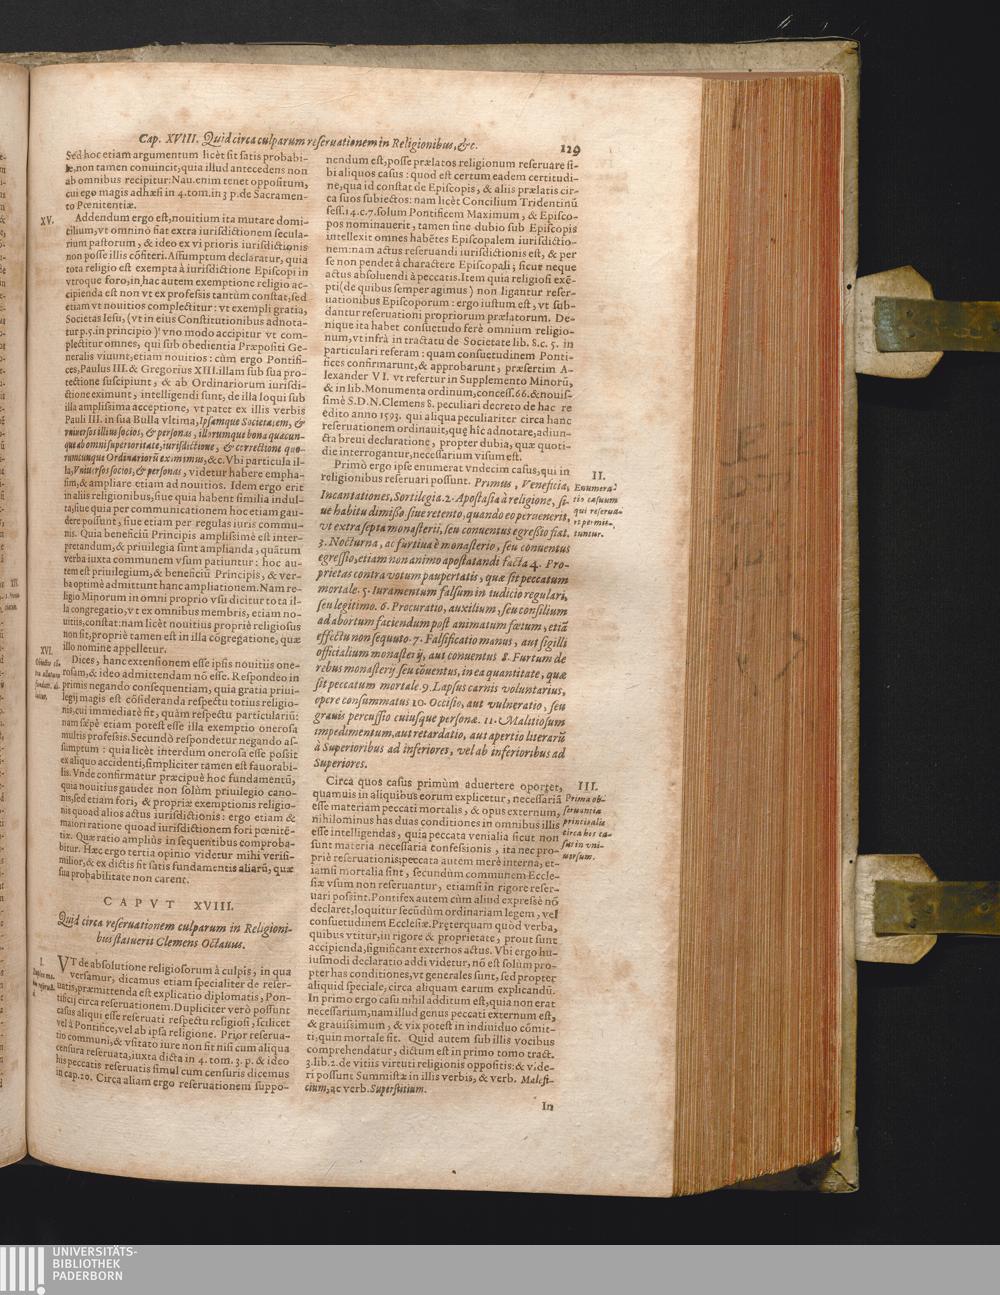 Cap. XVIII. Quid circa culparum reseruationem in Religionibus, &c.
129
Sed hoc etiam argumentum licèt sit satis probabi-
le, non tamen conuincit, quia illud antecedens non
ab omnibus recipitur: Nau. enim tenet oppositum,
cui ego magis adhæsi in 4. tom. in 3 p. de Sacramen-
to Pœnitentiæ.
XV.
Addendum ergo est, nouitium ita mutare domi-
cilium, vt omninò fiat extra iurisdictionem secula-
rium pastorum, & ideo ex vi prioris iurisdictionis
non posse illis cōfiteri. Assumptum declaratur, quia
tota religio est exempta à iurisdictione Episcopi in
vtroque foro, in hac autem exemptione religio ac-
cipienda est non vt ex professis tantùm constat, sed
etiam vt nouitios complectitur: vt exempli gratia,
Societas Iesu, (vt in eius Constitutionibus adnota-
tur p. 5. in principio) vno modo accipitur vt com-
plectitur omnes, qui sub obedientia Præpositi Ge-
neralis viuunt, etiam nouitios: cùm ergo Pontifi-
ces, Paulus III. & Gregorius XIII. illam sub sua pro-
tectione suscipiunt, & ab Ordinariorum iurisdi-
ctione eximunt, intelligendi sunt, de illa loqui sub
illa amplissima acceptione, vt patet ex illis verbis
Pauli III. in sua Bulla vltima, Ipsamque Societatem, &
vniuersos illius socios, & personas, illorumque bona quæcun-
que ab omni superioritate, iurisdictione, & correctione quo-
rumcunque Ordinariorū eximimus, &c. Vbi particula il-
la, Vniuersos socios, & personas, videtur habere empha-
sim, & ampliare etiam ad nouitios. Idem ergo erit
in aliis religionibus, siue quia habent similia indul-
ta, siue quia per communicationem hoc etiam gau-
dere possunt, siue etiam per regulas iuris commu-
nis. Quia beneficiū Principis amplissimè est inter-
pretandum, & priuilegia sunt amplianda, quātum
verba iuxta communem vsum patiuntur: hoc au-
tem est priuilegium, & beneficiū Principis, & ver-
ba optimè admittunt hanc ampliationem. Nam re-
ligio Minorum in omni proprio vsu dicitur tota il-
la congregatio, vt ex omnibus membris, etiam no-
uitiis, constat: nam licèt nouitius propriè religiosus
non sit, propriè tamen est in illa cōgregatione, quæ
illo nomine appelletur.
XVI.
Dices, hanc extensionem esse ipsis nouitiis one-
rosam, & ideo admittendam nō esse. Respondeo in
primis negando consequentiam, quia gratia priui-
legij magis est cōsideranda respectu totius religio-
nis, cui immediatè fit, quàm respectu particulariū:
nam sæpè etiam potest esse illa exemptio onerosa
multis professis. Secundò respondetur negando as-
sumptum: quia licèt interdum onerosa esse possit
ex aliquo accidenti, simpliciter tamen est fauorabi-
lis. Vnde confirmatur præcipuè hoc fundamentū,
quia nouitius gaudet non solùm priuilegio cano-
nis, sed etiam fori, & propriæ exemptionis religio-
nis quoad alios actus iurisdictionis: ergo etiam &
maiori ratione quoad iurisdictionem fori pœnitē-
tiæ. Quæ ratio ampliùs in sequentibus comproba-
bitur. Hæc ergo tertia opinio videtur mihi verisi-
milior, & ex dictis fit satis fundamentis aliarū, quæ
sua probabilitate non carent.
CAPVT XVIII.
Quid circa reseruationem culparum in Religioni-
bus statuerit Clemens Octauus.
I.
VT de absolutione religiosorum à culpis, in qua
versamur, dicamus etiam specialiter de reser-
uatis, præmittenda est explicatio diplomatis, Pon-
tificij circa reseruationem. Dupliciter verò possunt
casus aliqui esse reseruati respectu religiosi, scilicet
vel à Pontifice, vel ab ipsa religione. Prior reserua-
tio communi, & vsitato iure non fit nisi cum aliqua
censura reseruata, iuxta dicta in 4. tom. 3. p. & ideo
his peccatis reseruatis simul cum censuris dicemus
in cap. 20. Circa aliam ergo reseruationem suppo-
nendum est, posse prælatos religionum reseruare si-
bi aliquos casus: quod est certum eadem certitudi-
ne, qua id constat de Episcopis, & aliis prælatis cir-
ca suos subiectos: nam licèt Concilium Tridentinū
sess. 14. c. 7. solum Pontificem Maximum, & Episco-
pos nominauerit, tamen sine dubio sub Episcopis
intellexit omnes habētes Episcopalem iurisdictio-
nem: nam actus reseruandi iurisdictionis est, & per
se non pendet à charactere Episcopali; sicut neque
actus absoluendi à peccatis. Item quia religiosi exē-
pti (de quibus semper agimus) non ligantur reser-
uationibus Episcoporum: ergo iustum est, vt sub-
dantur reseruationi propriorum prælatorum. De-
nique ita habet consuetudo ferè omnium religio-
num, vt infrà in tractatu de Societate lib. 8. c. 5. in
particulari referam: quam consuetudinem Ponti-
fices confirmarunt, & approbarunt, præsertim A-
lexander VI. vt refertur in Supplemento Minorū,
& in lib. Monumenta ordinum, concess. 66. & nouis-
simè S. D. N. Clemens 8. peculiari decreto de hac re
edito anno 1593. qui aliqua peculiariter circa hanc
reseruationem ordinauit, quę hîc adnotare, adiun-
cta breui declaratione, propter dubia, quæ quoti-
die interrogantur, necessarium visum est.
II.
Enumera-
tio casuum
qui reserua-
ri permit-
tuntur.
Primò ergo ipse enumerat vndecim casus, qui in
religionibus reseruari possunt. Primus, Veneficia,
Incantationes, Sortilegia. 2. Apostasia à religione, si-
ue habitu dimisso, siue retento, quando eo peruenerit,
vt extra septa monasterii, seu conuentus egressio fiat.
3. Nocturna, ac furtiua è monasterio, seu conuentus
egressio, etiam non animo apostatandi facta. 4. Pro-
prietas contra votum paupertatis, quæ sit peccatum
mortale. 5. Iuramentum falsum in iudicio regulari,
seu legitimo. 6. Procuratio, auxilium, seu consilium
ad abortum faciendum post animatum fœtum, etiā
effectu non sequuto. 7. Falsificatio manus, aut sigilli
officialium monasterij, aut conuentus 8. Furtum de
rebus monasterij seu cōuentus, in ea quantitate, quæ
sit peccatum mortale. 9. Lapsus carnis voluntarius,
opere consummatus 10. Occisio, aut vulneratio, seu
grauis percussio cuiusque personæ. 11. Malitiosum
impedimentum, aut retardatio, aut apertio literarū
à Superioribus ad inferiores, vel ab inferioribus ad
Superiores.
III.
Prima ob-
seruantia
principalis
circa hos ca-
sus in vni-
uersum.
Circa quos casus primùm aduertere oportet,
quamuis in aliquibus eorum explicetur, necessariā
esse materiam peccati mortalis, & opus externum,
nihilominus has duas conditiones in omnibus illis
esse intelligendas, quia peccata venialia sicut non
sunt materia necessaria confessionis, ita nec pro-
priè reseruationis: peccata autem merè interna, et-
iamsi mortalia sint, secundùm communem Eccle-
siæ vsum non reseruantur, etiamsi in rigore reser-
uari possint. Pontifex autem cùm aliud expressè nō
declaret, loquitur secūdùm ordinariam legem, vel
consuetudinem Ecclesiæ. Præterquam quod verba,
quibus vtitur, in rigore & proprietate, prout sunt
accipienda, significant externos actus. Vbi ergo hu-
iusmodi declaratio addi videtur, nō est solùm pro-
pter has conditiones, vt generales sunt, sed propter
aliquid speciale, circa aliquam earum explicandū.
In primo ergo casu nihil additum est, quia non erat
necessarium, nam illud genus peccati externum est,
& grauissimum, & vix potest in indiuiduo cōmit-
ti, quin mortale sit. Quid autem sub illis vocibus
comprehendatur, dictum est in primo tomo tract.
3. lib. 2. de vitiis virtuti religionis oppositis: & vide-
ri possunt Summistæ in illis verbis, & verb. Malefi-
cium, ac verb. Superstitium.
In
UNIVERSITÄTS-
BIBLIOTHEK
PADERBORN